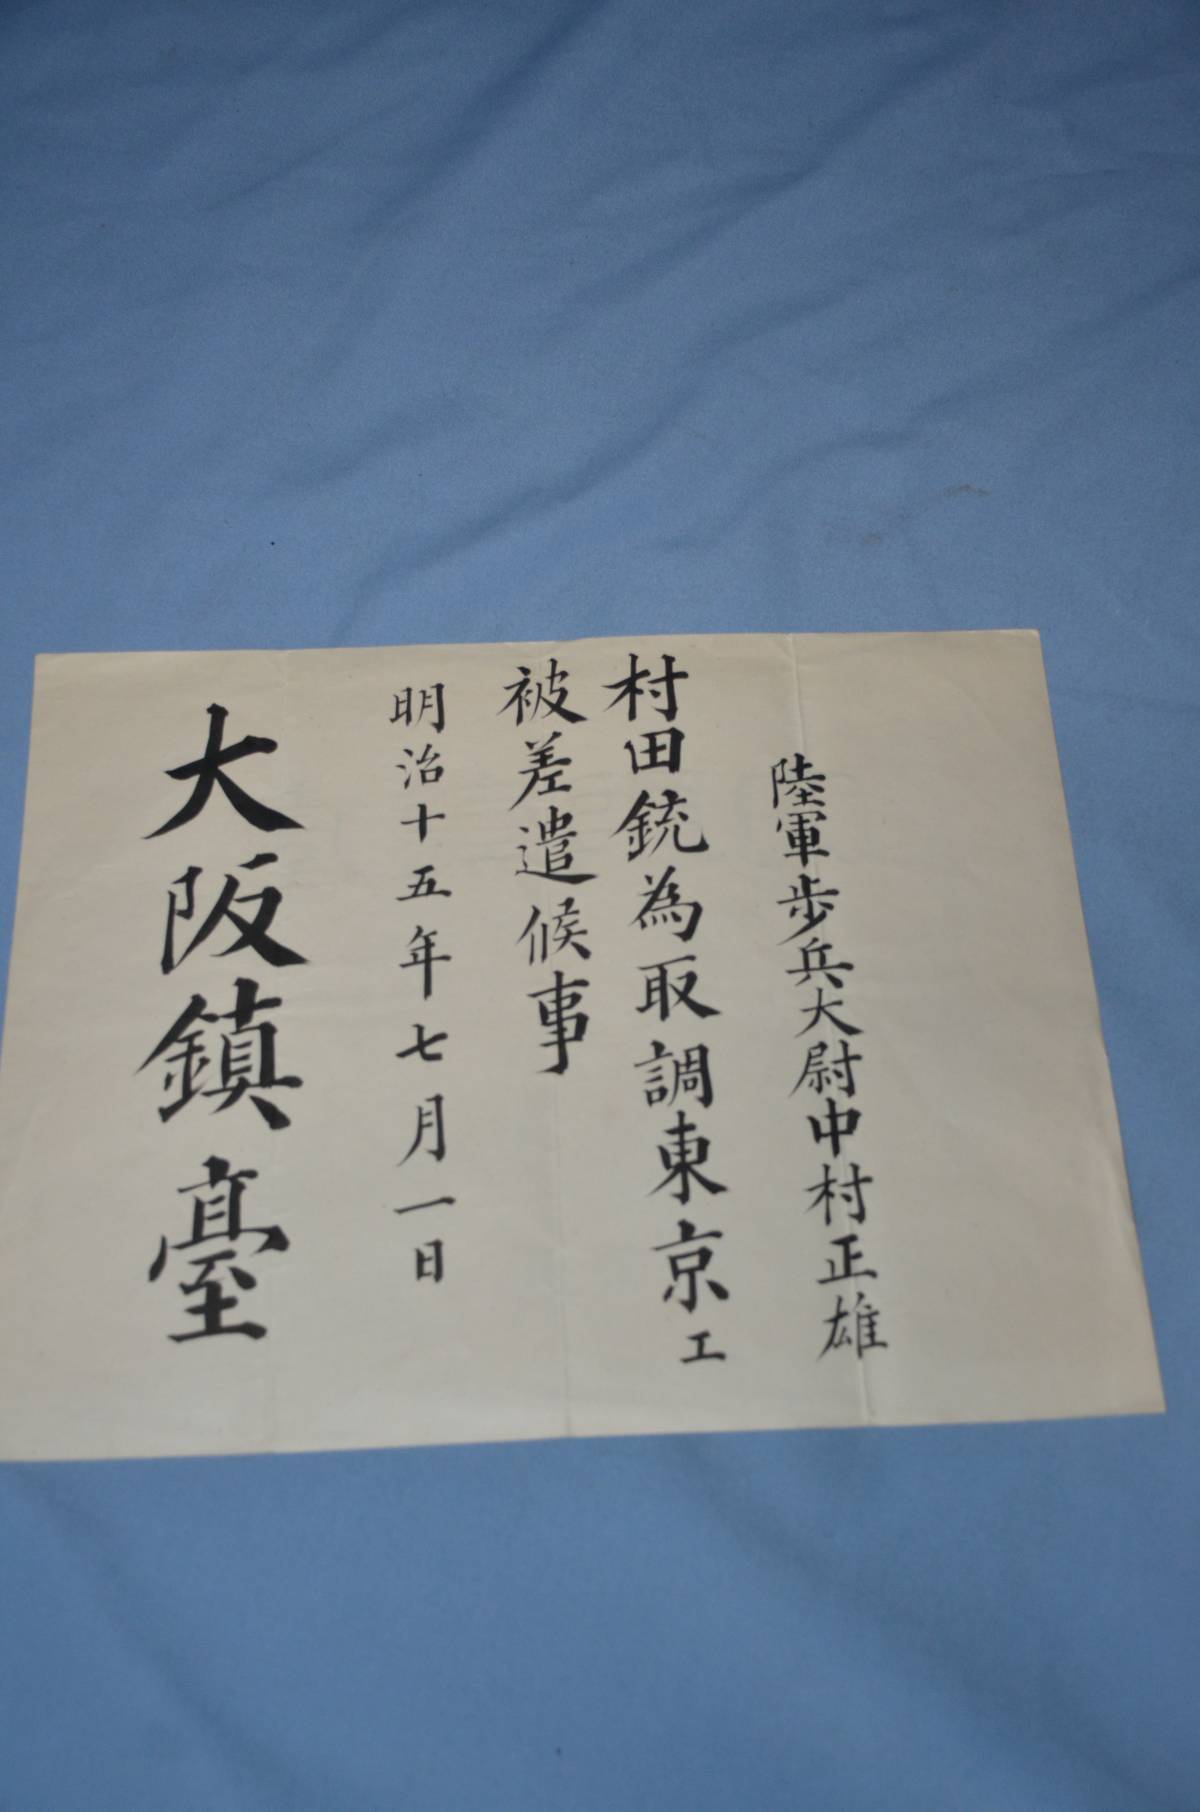 陸軍歩兵大尉中村正雄
村田銃為取調東京エ
被差遣候事
明治十五年七月一日
大阪鎮臺